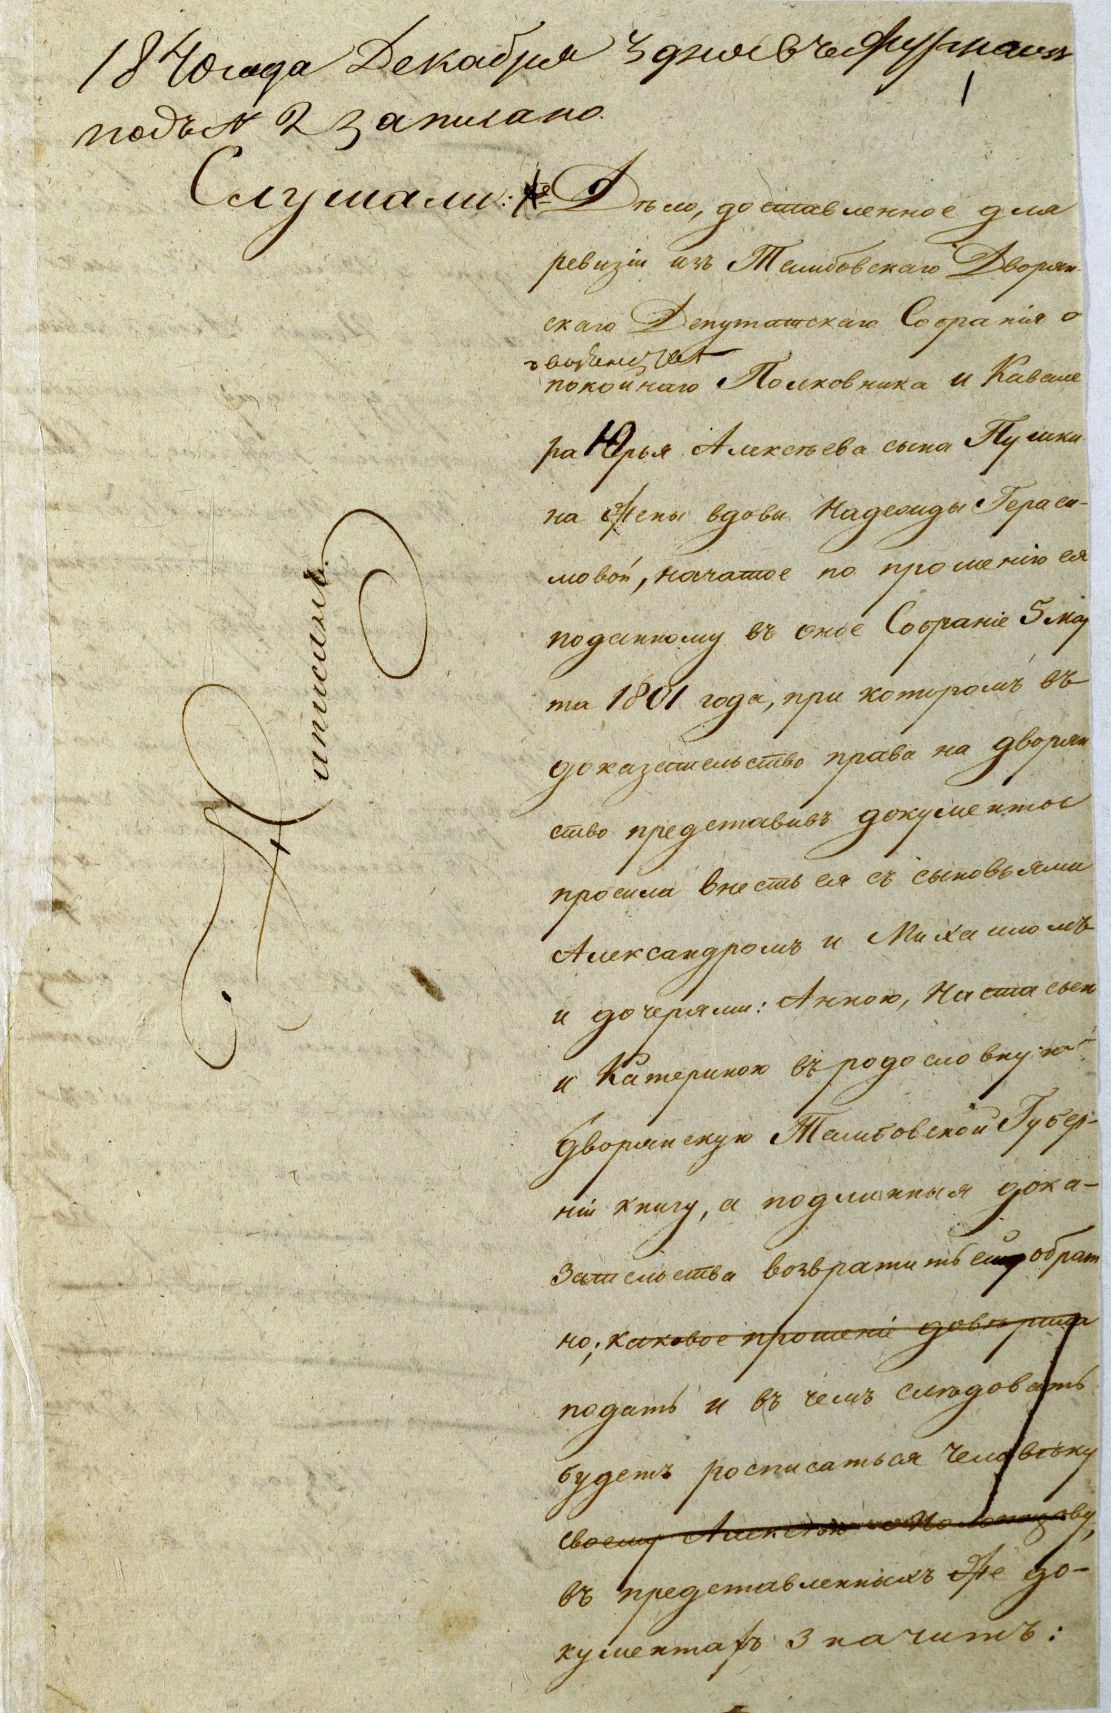 1840 года Декабря 3 дня въ Журналъ
1
подъ № 2 записано.
Слушали: Дѣло, доставленное для
ревизіи изъ Тамбовскаго Дворян-
скаго Депутатскаго Собранія о
покойнаго Полковника и Кавале
ра Юрья Алексѣева сына Пушки
на жены вдовы Надежды Гераси-
мовой, начатое по прошенію ея
поданному въ оное Собраніе 5 мар
та 1801 года, при которомъ въ
доказательство права на дворян
ство представивъ документы
просила внесть ея съ сыновьями
Александромъ и Михаиломъ
и дочерями: Анною, Настасьею
и Катериною въ родословную
дворянскую Тамбовской Губер-
ніи книгу, а подлинныя дока-
зательства возвратить ей обрат
но; каковое прошеніе довѣрила
подать и въ чемъ слѣдовать
будетъ росписаться человѣку
своему Алексѣю
въ представленныхъ же до-
кументахъ значитъ:
Записилъ.